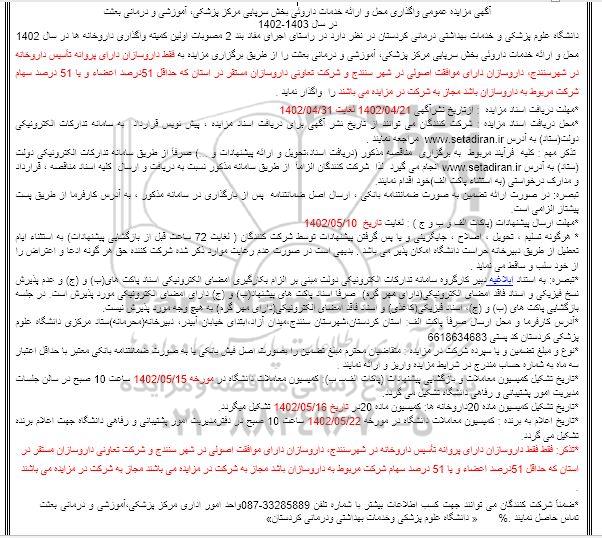 آگهی مزایده عمومی واگذاری محل و ارائه خدمات داروئی بخش سرپایی مرکز پزشکی، آموزشی و درمانی بعثت
در سال 1403-1402
دانشگاه علوم پزشکی و خدمات بهداشتی درمانی کردستان در نظر دارد در راستای اجرای مفاد بند 2 مصوبات اولین کمیته واگذاری داروخانه ها در سال 1402
محل و ارائه خدمات داروئی بخش سرپایی مرکز پزشکی، آموزشی و درمانی بعثت را از طریق برگزاری مزایده به فقط داروسازان دارای پروانه تأسیس داروخانه
در شهرسنندج، داروسازان دارای موافقت اصولی در شهر سنندج و شرکت تعاونی داروسازان مستقر در استان که حداقل 51درصد اعضاء و یا 51 درصد سهام
شرکت مربوط به داروسازان باشد مجاز به شرکت در مزایده می باشند را واگذار نماید .
*مهلت دریافت اسناد مزایده : ازتاریخ نشرآگهی 1402/04/21 لغایت 1402/04/31
*محل دریافت اسناد مزایده : شرکت کنندگان می توانند از تاریخ نشر آگهی برای دریافت اسناد مزایده ، پیش نویس قرارداد به سامانه تدارکات الکترونیکی
دولت(ستاد) به آدرس www.setadiran.ir مراجعه نمایند .
تذکر مهم : کلیه فرآیند مربوط به برگزاری مناقصه مذکور (دریافت اسناد،تحویل و ارائه پیشنهادات و ..) صرفاً از طریق سامانه تدارکات الکترونیکی دولت
(ستاد) به آدرس www.setadiran.ir انجام می گیرد. لذا شرکت کنندگان الزاماً از طریق سامانه مذکور نسبت به دریافت و ارسال کلیه اسناد مناقصه ، قرارداد
و مدارک درخواستی (به استثناء پاکت الف)خود اقدام نمایند
تبصره: در صورت ارائه تضمین به صورت ضمانتنامه بانکی ، ارسال اصل ضمانتنامه پس از بارگذاری در سامانه مذکور ، به آدرس کارفرما از طریق پست
پیشتاز الزامی است
*مهلت ارسال پیشنهادات (پاکت الف و ب و ج ) : لغایت تاریخ 1402/05/10
* هرگونه تسلیم ، تحویل ، اصلاح ، جایگزینی و یا پس گرفتن پیشنهادات توسط شرکت کنندگان ( لغایت 72 ساعت قبل از بازگشایی پیشنهادات) به استثناء ایام
تعطیل از طریق دبیرخانه حراست دانشگاه امکان پذیر می باشد . بدیهی است در صورت عدم رعایت موارد ذکر شده شرکت کننده حق هر گونه ادعا و اعتراض را
از خود سلب و ساقط می نماید .
*تبصره: به استناد ابلاغیه دبیر کارگروه سامانه تدارکات الکترونیکی دولت مبنی بر الزام بکارگیری امضای الکترونیکی اسناد پاکت های(ب) و (ج) و عدم پذیرش
نسخ فیزیکی و اسناد فاقد امضای الکترونیکی(دارای مهر گرم) صرفاً اسناد پاکت های پیشنهاد(ب) و (ج) دارای امضای الکترونیکی مورد پذیرش است. در جلسه
بازگشایی پاکت های (ب) و (ج) ، اسناد فیزیکی(کاغذی) و اسناد فاقد امضای الکترونیکی(دارای مهر گرم) به هیچ وجه مورد پذیرش نیست.
*آدرس کارفرما و محل ارسال صرفاً پاکت الف: استان کردستان،شهرستان سنندج،میدان آزاد،ابتدای خیابان آبیدر، دبیرخانه(محرمانه)ستاد مرکزی دانشگاه علوم
پزشکی کردستان کد پستی 6618634683
*نوع و مبلغ تضمین و یا سپرده شرکت در مزایده : متقاضیان محترم مبلغ تضمین را بصورت اصل فیش بانکی یا به صورت ضمانتنامه بانکی معتبر با حداقل اعتبار
سه ماه به شماره حساب مندرج در شرایط مزایده واریز و ارائه نمایند .
*تاریخ تشکیل کمیسیون معاملات و بازگشایی پیشنهادات (پاکات الف،ب،ب): کمیسیون معاملات دانشگاه در مورخه 1402/05/15 ساعت 10 صبح در سالن جلسات
مدیریت امور پشتیبانی و رفاهی دانشگاه تشکیل می گردد.
*تاریخ تشکیل کمیسیون ماده 20-داروخانه ها: کمیسیون ماده 20-در تاریخ 1402/05/16 تشکیل میگردد.
*تاریخ اعلام به برنده : کمیسیون معاملات دانشگاه در مورخه 1402/05/22 ساعت 10 صبح در دفترمدیریت امور پشتیبانی و رفاهی دانشگاه جهت اعلام برنده
تشکیل می گردد.
*تذکر: فقط فقط داروسازان دارای پروانه تأسیس داروخانه در شهرسنندج، داروسازان دارای موافقت اصولی در شهر سنندج و شرکت تعاونی داروسازان مستقر در
استان که حداقل 51درصد اعضاء و یا 51 درصد سهام شرکت مربوط به داروسازان باشد مجاز به شرکت در مزایده می باشند مجاز به شرکت در مزایده می باشند
.
*ضمناً شرکت کنندگان می توانند جهت کسب اطلاعات بیشتر با شماره تلفن 33285889-087واحد امور اداری مرکز پزشکی،آموزشی و درمانی بعثت
تماس حاصل نمایند .% « دانشگاه علوم پزشکی وخدمات بهداشتی ودرمانی کردستان»